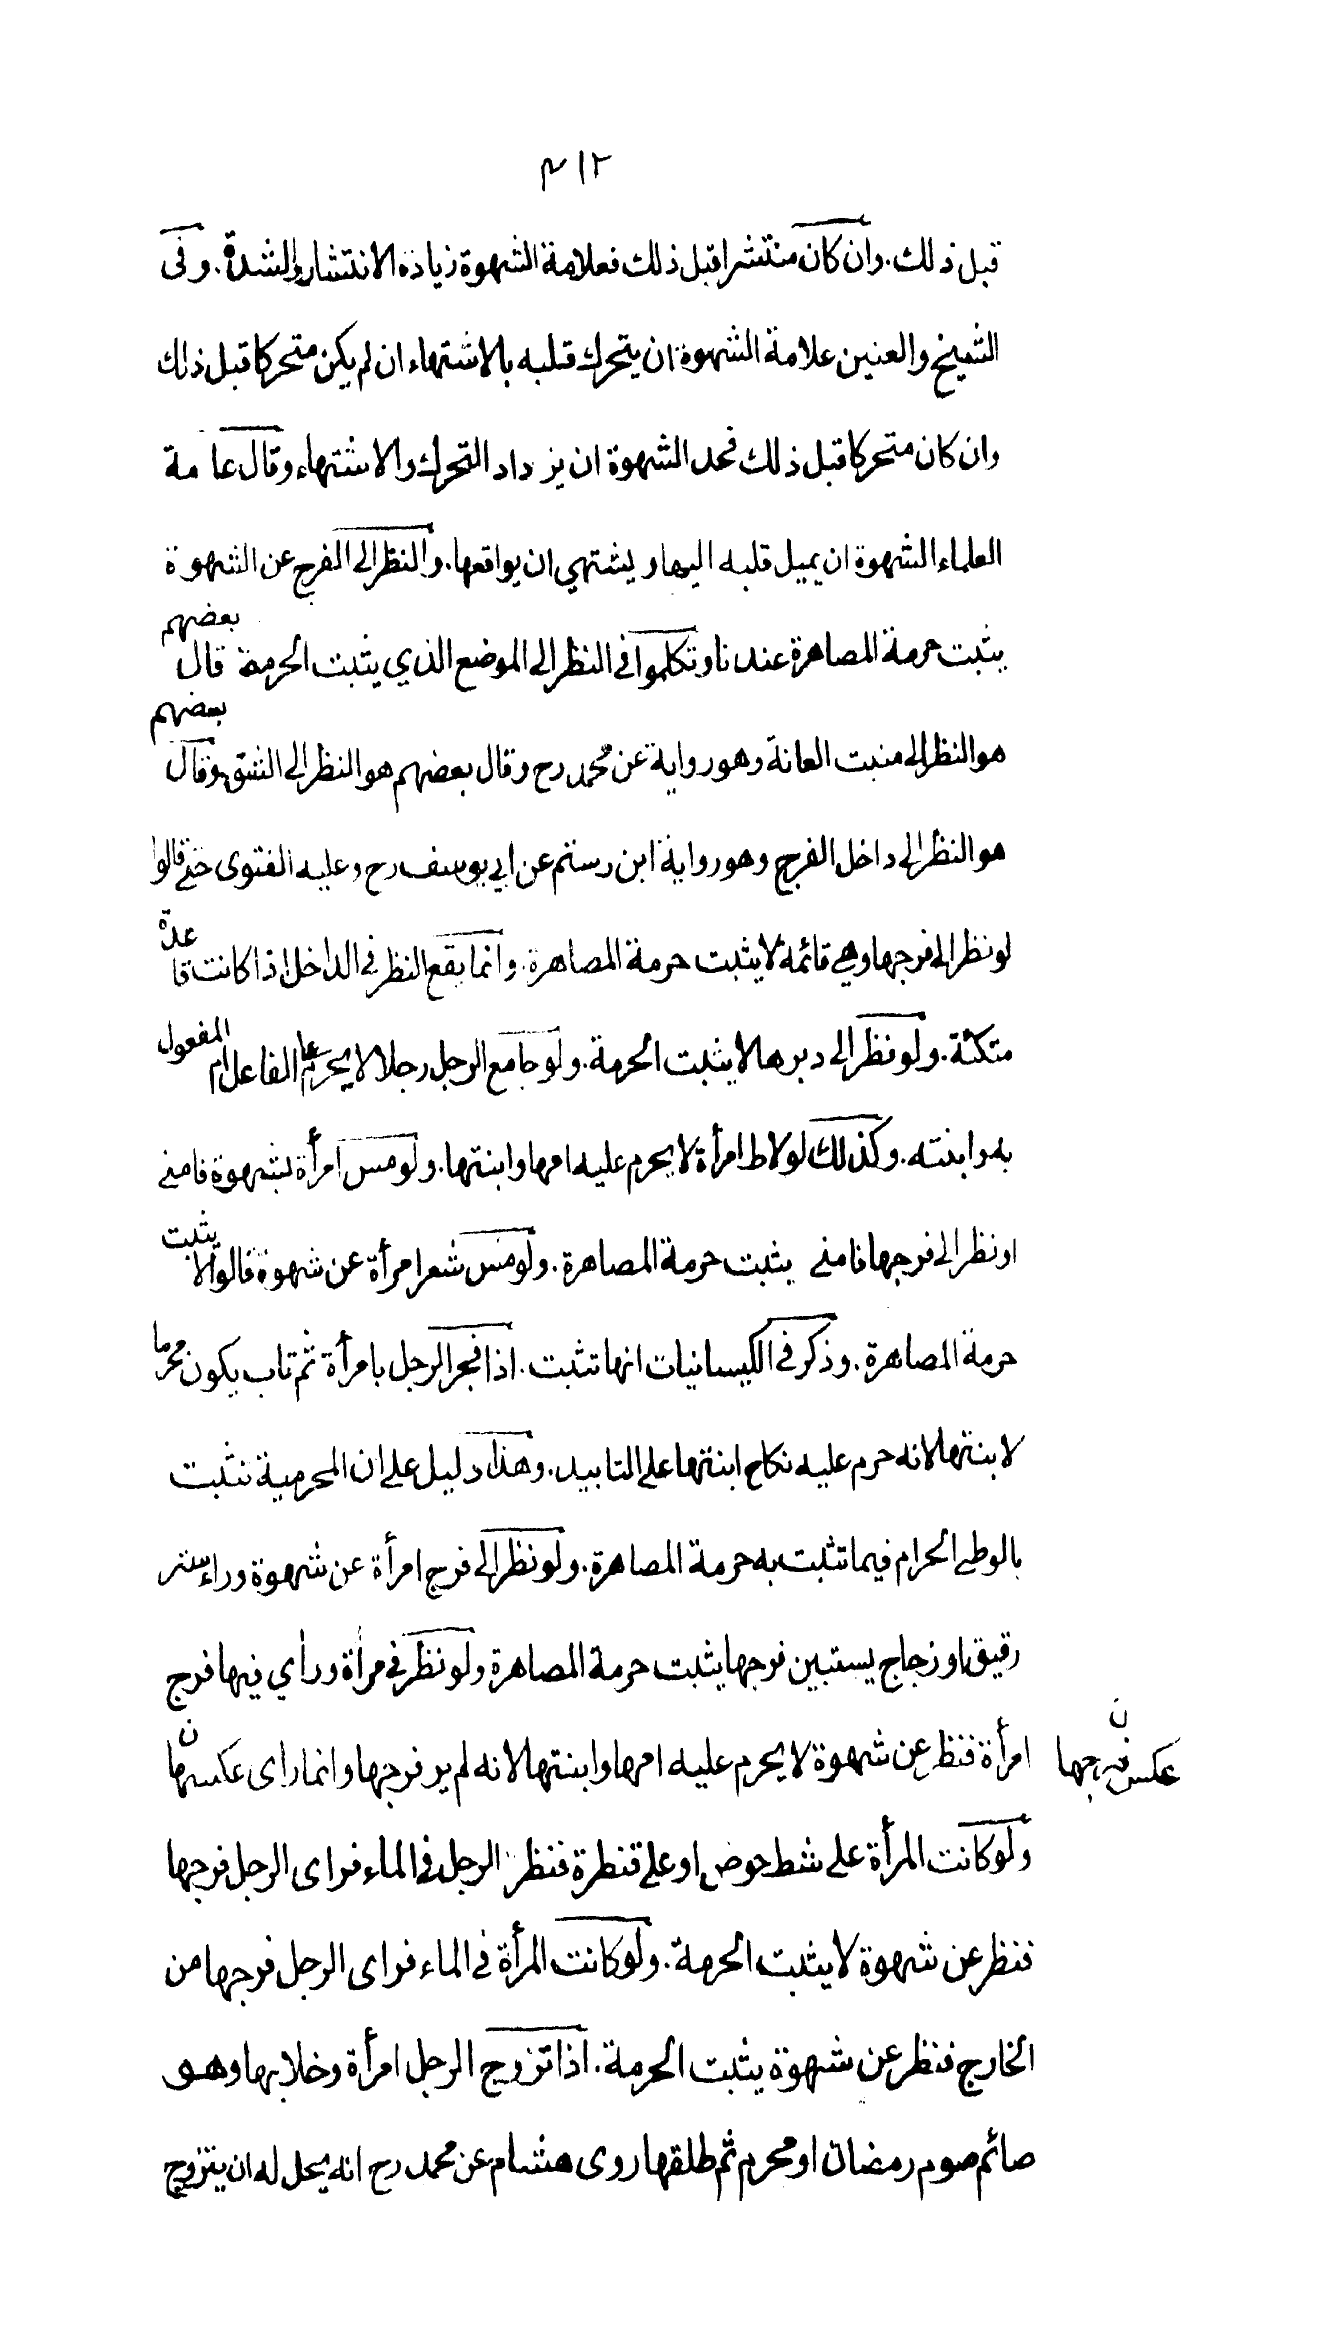 ٣١٢
قبل ذلك. وان كان منتشرا قبل ذلك فعلامة الشهوة زيادة الانتشار والشدة. وفى
الشيخ والعنين علامة الشهوة ان يتحرك قلبه بالاشتهاء ان لم يكن متحركا قبل ذلك
وان كان متحركا قبل ذلك فحد الشهوة ان يزداد التحرك والاشتهاء وقال عامة
العلماء الشهوة ان يميل قلبه اليها ويشتهي ان يواقعها. والنظر الى الفرج عن الشهوة
يثبت حرمة المصاهرة عندنا وتكلموا فى النظر الى الموضع الذي يثبت الحرمة قال بعضهم
هو النظر الى منبت العانة وهو رواية عن محمد رح وقال بعضهم هو النظر الى الشق وقال بعضهم
هو النظر الى داخل الفرج وهو رواية ابن رستم عن ابي يوسف رح وعليه الفتوى حتى قالوا
لو نظر الى فرجها وهي قائمة لا يثبت حرمة المصاهرة. وانما يقع النظر فى الداخل اذا كانت قاعدة
متكئة. ولو نظر الى دبرها لا يثبت الحرمة. ولو جامع الرجل رجلا لا يحرم على الفاعل ام المفعول
به وابنته. وكذلك لو لاط امرأة لا يحرم عليه امها وابنتها. ولو مس امرأة بشهوة فامنى
او نظر الى فرجها فامنى يثبت حرمة المصاهرة. ولو مس شعر امرأة عن شهوة قالوا لا يثبت
حرمة المصاهرة. وذكر فى الكيسانيات انها تثبت. اذا فجر الرجل بامرأة ثم تاب يكون محرما
لابنتها لانه حرم عليه نكاح ابنتها على التابيد. وهذا دليل على ان المحرمية تثبت
بالوطى الحرام فيما تثبت به حرمة المصاهرة. ولو نظر الى فرج امرأة عن شهوة وراء ستر
رقيق او زجاج يستبين فرجها يثبت حرمة المصاهرة ولو نظر فى مرأة ورأي فيها فرج
امرأة فنظر عن شهوة لا يحرم عليه امها وابنتها لانه لم ير فرجها وانما راى عكسها ن
ن عكس فرجها
ولو كانت المرأة على شط حوض او على قنطرة فنظر الرجل فى الماء فراى الرجل فرجها
فنظر عن شهوة لا يثبت الحرمة. ولو كانت المرأة فى الماء فراى الرجل فرجها من
الخارج فنظر عن شهوة يثبت الحرمة. اذا تزوج الرجل امرأة وخلا بها وهو
صائم صوم رمضان او محرم ثم طلقها روى هشام عن محمد رح انه يحل له ان يتزوج